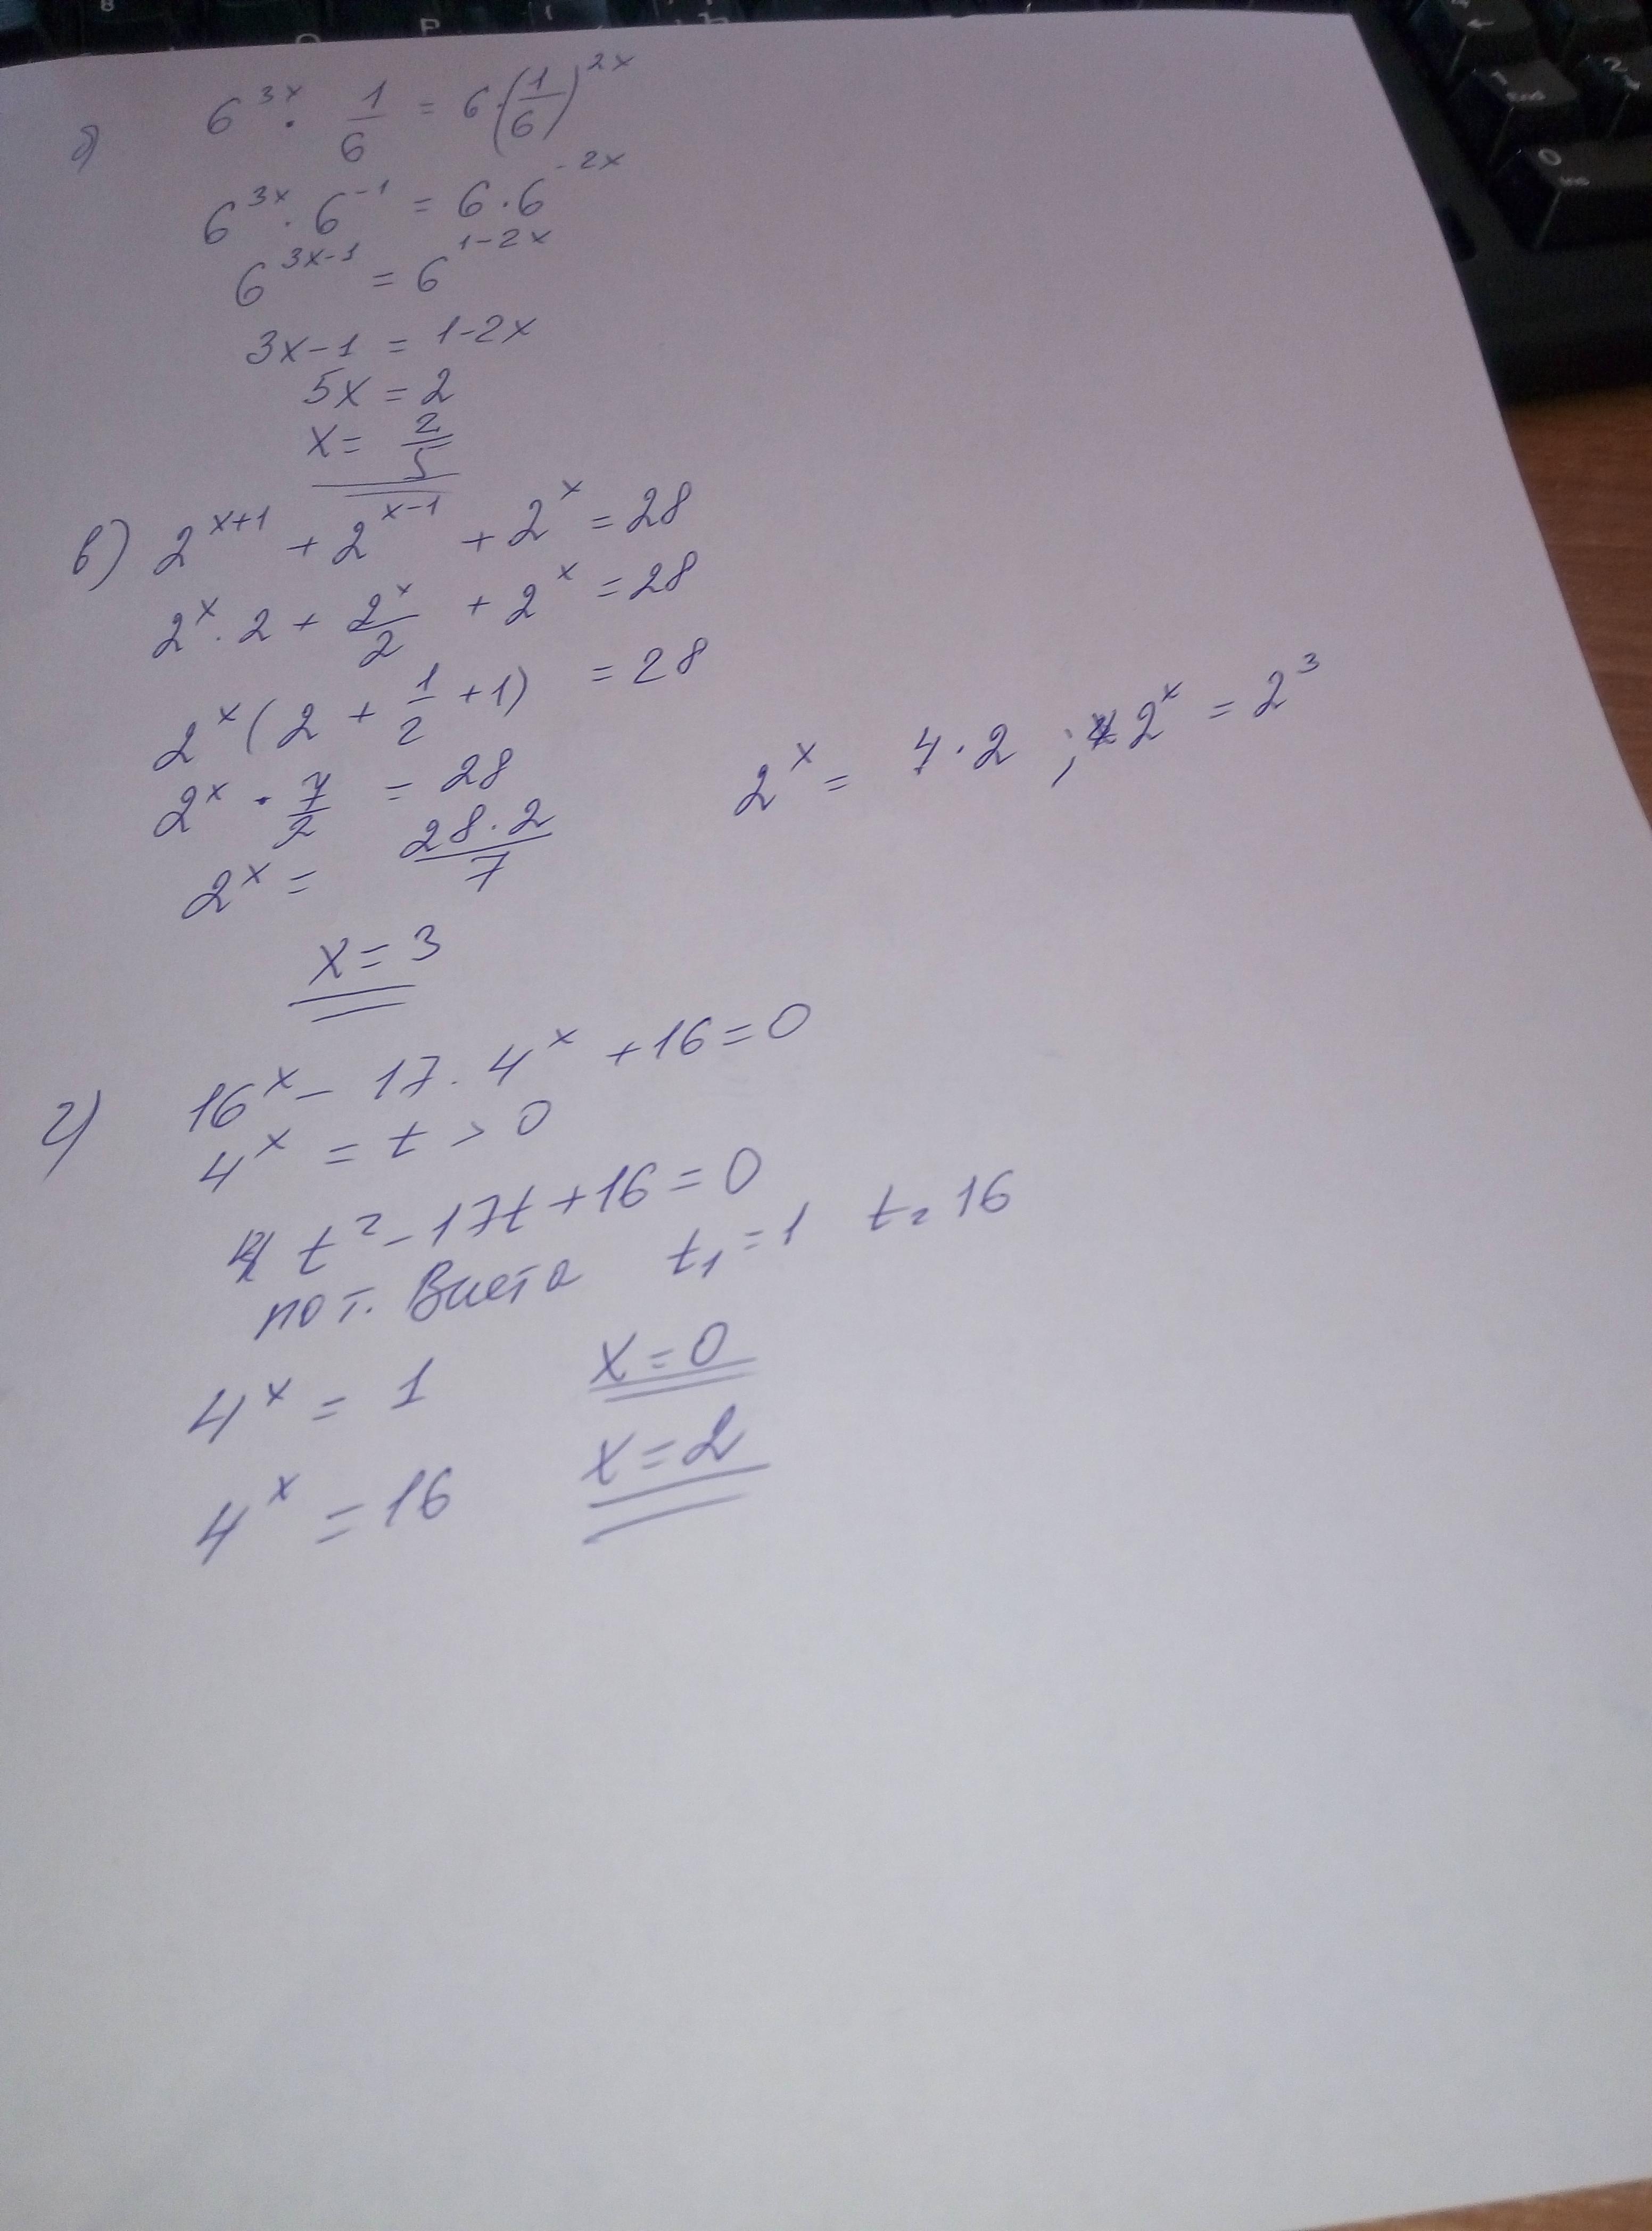 б) 6^{3x} · 1/6 = 6·(1/6)^{2x}
6^{3x} · 6^{-1} = 6 · 6^{-2x}
6^{3x-1} = 6^{1-2x}
3x-1 = 1-2x
5x = 2
x = 2/5
в) 2^{x+1} + 2^{x-1} + 2^x = 28
2^x · 2 + 2^x/2 + 2^x = 28
2^x (2 + 1/2 + 1) = 28
2^x · 7/2 = 28
2^x = 28·2/7
2^x = 4·2 ; 2^x = 2^3
x = 3
г) 16^x - 17 · 4^x + 16 = 0
4^x = t > 0
t^2 - 17t + 16 = 0
по т. Виета t_1 = 1 t_2 16
4^x = 1 x = 0
4^x = 16 x = 2